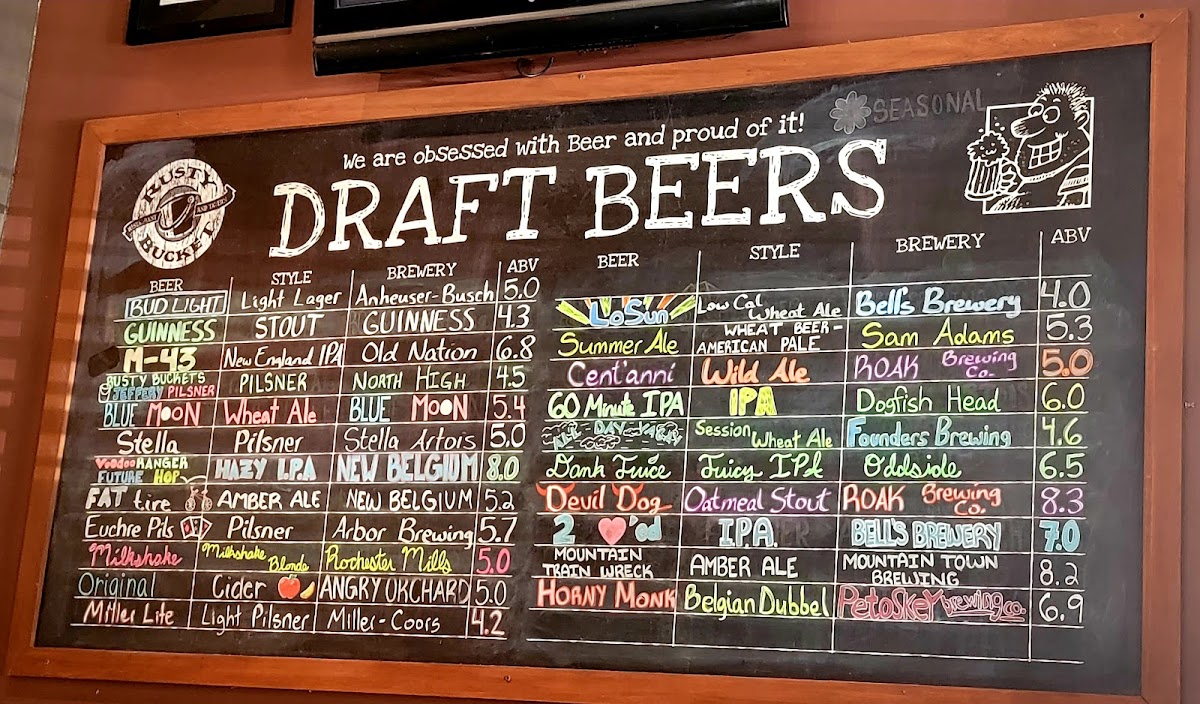 SEASONAL
We are obsessed with Beer and proud of it!
DRAFT BEERS
RUSTY
BUCKET
BEER STYLE BREWERY ABV
BUD LIGHT Light Lager Anheuser-Busch 5.0
GUINNESS STOUT GUINNESS 4.3
M-43 New England IPA Old Nation 6.8
RUSTY BUCKETS
JEFFERY PILSNER PILSNER NORTH HIGH 4.5
BLUE MOON Wheat Ale BLUE MOON 5.4
Stella Pilsner Stella Artois 5.0
Voodoo RANGER
FUTURE HOP HAZY I.P.A NEW BELGIUM 8.0
FAT tire AMBER ALE NEW BELGIUM 5.2
Euchre Pils Pilsner Arbor Brewing 5.7
Milkshake Milkshake Blonde Rochester Mills 5.0
Original Cider ANGRY ORCHARD 5.0
Miller Lite Light Pilsner Miller-Coors 4.2
BEER STYLE BREWERY ABV
LoSun Low Cal Wheat Ale Bell's Brewery 4.0
Summer Ale WHEAT BEER-
AMERICAN PALE Sam Adams 5.3
Cent'anni Wild Ale ROAK Brewing Co. 5.0
60 Minute IPA IPA Dogfish Head 6.0
ALL DAY VACAY Session Wheat Ale Founders Brewing 4.6
Dank Juice Juicy IPA Oddside 6.5
Devil Dog Oatmeal Stout ROAK Brewing Co. 8.3
2 ❤'ed I.P.A. BELL'S BREWERY 7.0
MOUNTAIN
TRAIN WRECK AMBER ALE MOUNTAIN TOWN
BREWING 8.2
HORNY MONK Belgian Dubbel Petoskey brewing co. 6.9